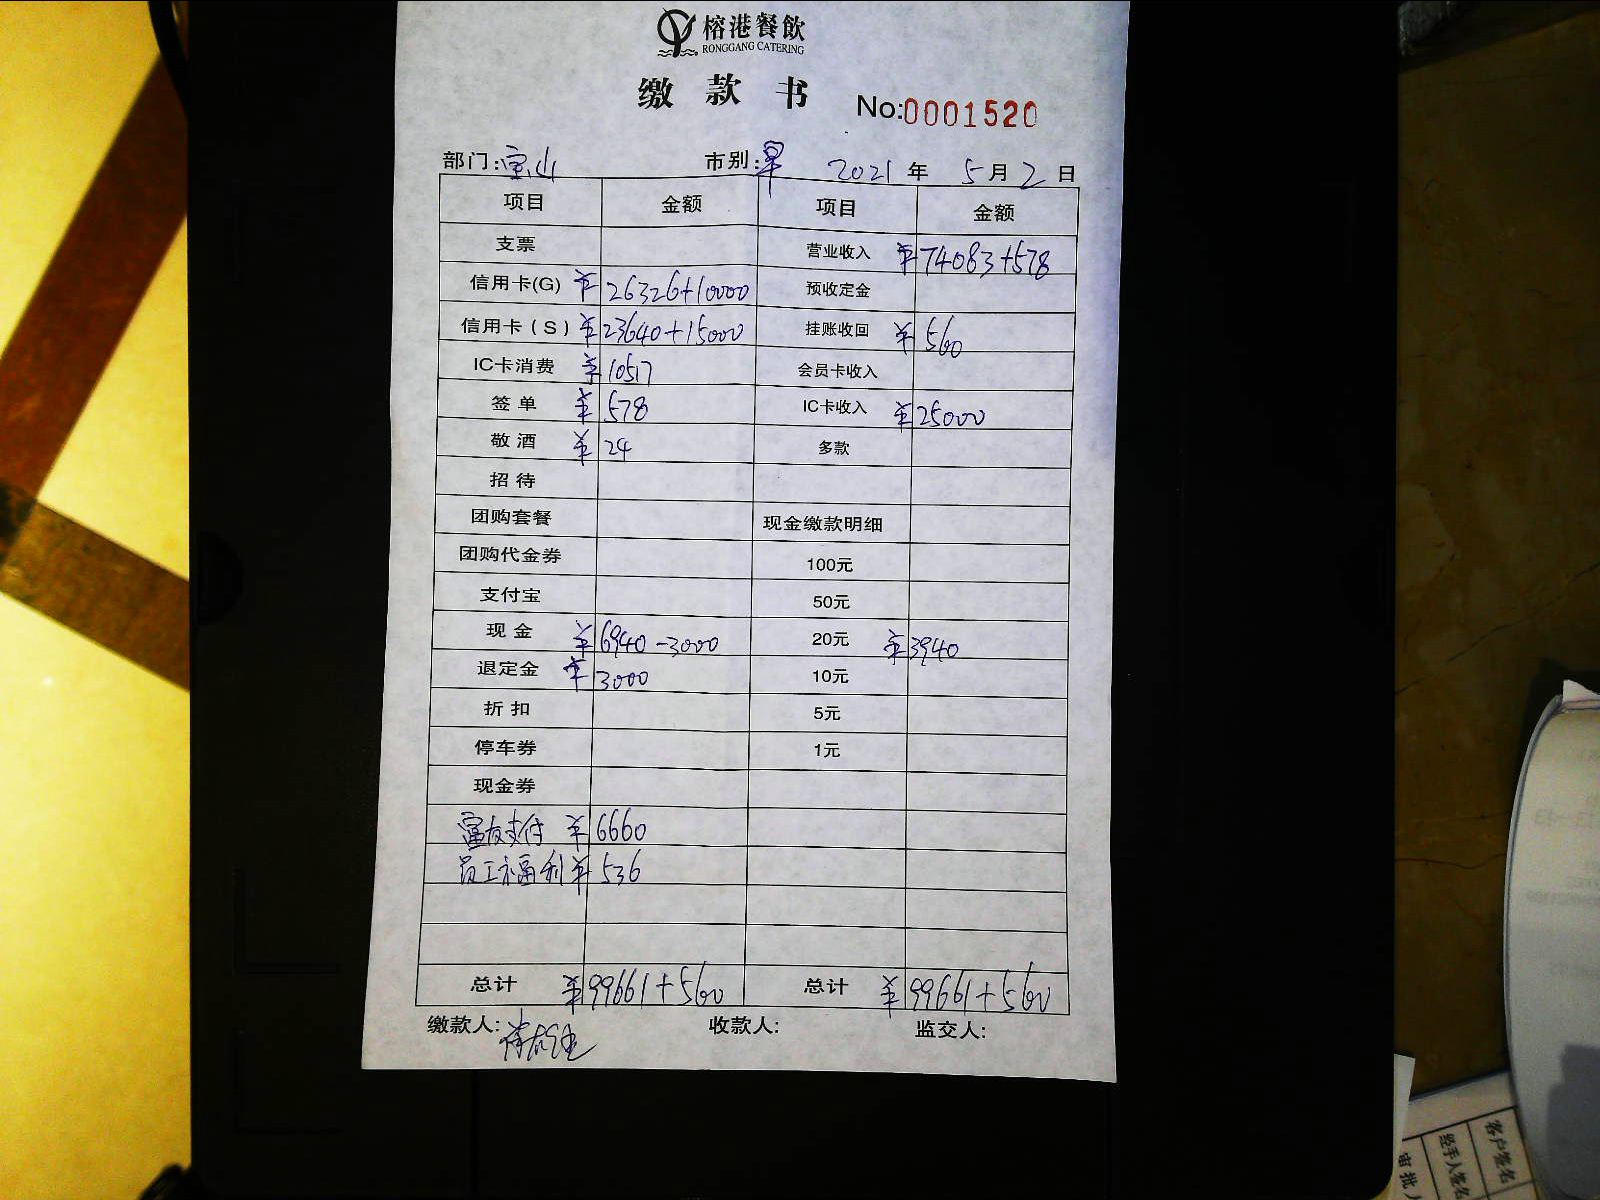 榕港餐飲
RONGGANG CATERING
缴款书
No:0001520
部门:宝山 市别:早 2021年5月2日
项目 金额 项目 金额
支票 营业收入 ¥74083+578
信用卡(G) ¥26326+10000 预收定金
信用卡(S) ¥23640+15000 挂账收回 ¥560
IC卡消费 ¥10517 会员卡收入
签单 ¥578 IC卡收入 ¥25000
敬酒 ¥24 多款
招待
团购套餐 现金缴款明细
团购代金券 100元
支付宝 50元
现金 ¥6940-3000 20元 ¥3940
退定金 ¥3000 10元
折扣 5元
停车券 1元
现金券
富友支付 ¥6660
员工福利 ¥536
总计 ¥99661+560 总计 ¥99661+560
缴款人: 收款人: 监交人:
客户签名
经手人签名
审批